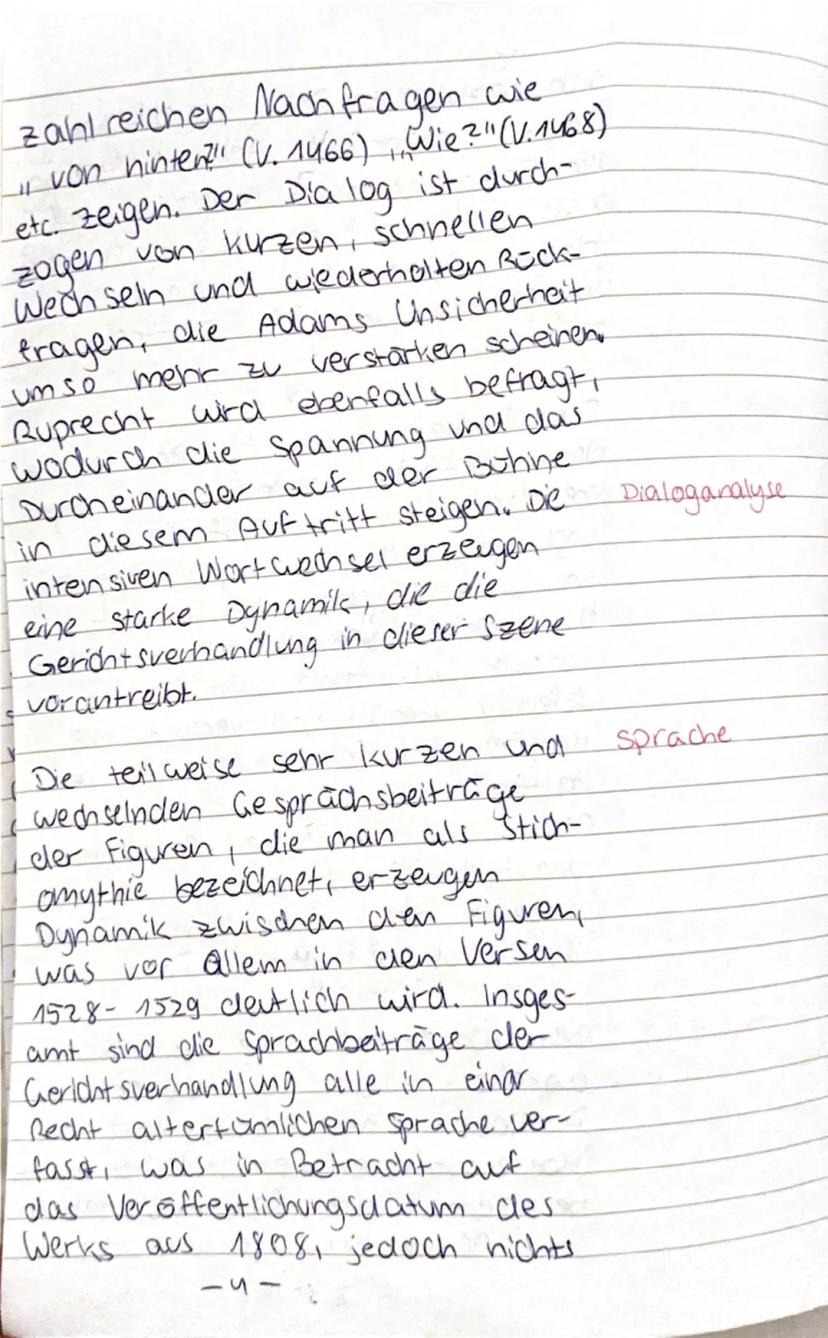 zahlreichen Nachfragen wie
„von hinten?" (V. 1466), „Wie?" (V. 1468)
etc. zeigen. Der Dialog ist durch-
zogen von kurzen, schnellen
Wechseln und wiederholten Rück-
fragen, die Adams Unsicherheit
umso mehr zu verstärken scheinen.
Ruprecht wird ebenfalls befragt,
wodurch die Spannung und das
Durcheinander auf der Bühne
in diesem Auftritt steigen. Die
Dialoganalyse
intensiven Wortwechsel erzeugen
eine starke Dynamik, die die
Gerichtsverhandlung in dieser Szene
vorantreibt.
Die teilweise sehr kurzen und
Sprache
wechselnden Gesprächsbeiträge
der Figuren, die man als Stich-
omythie bezeichnet, erzeugen
Dynamik zwischen den Figuren,
was vor allem in den Versen
1528- 1529 deutlich wird. Insges-
amt sind die Sprachbeiträge der
Gerichtsverhandlung alle in einer
Recht altertümlichen Sprache ver-
fasst, was in Betracht auf
das Veröffentlichungsdatum des
Werks aus 1808, jedoch nichts
-4-